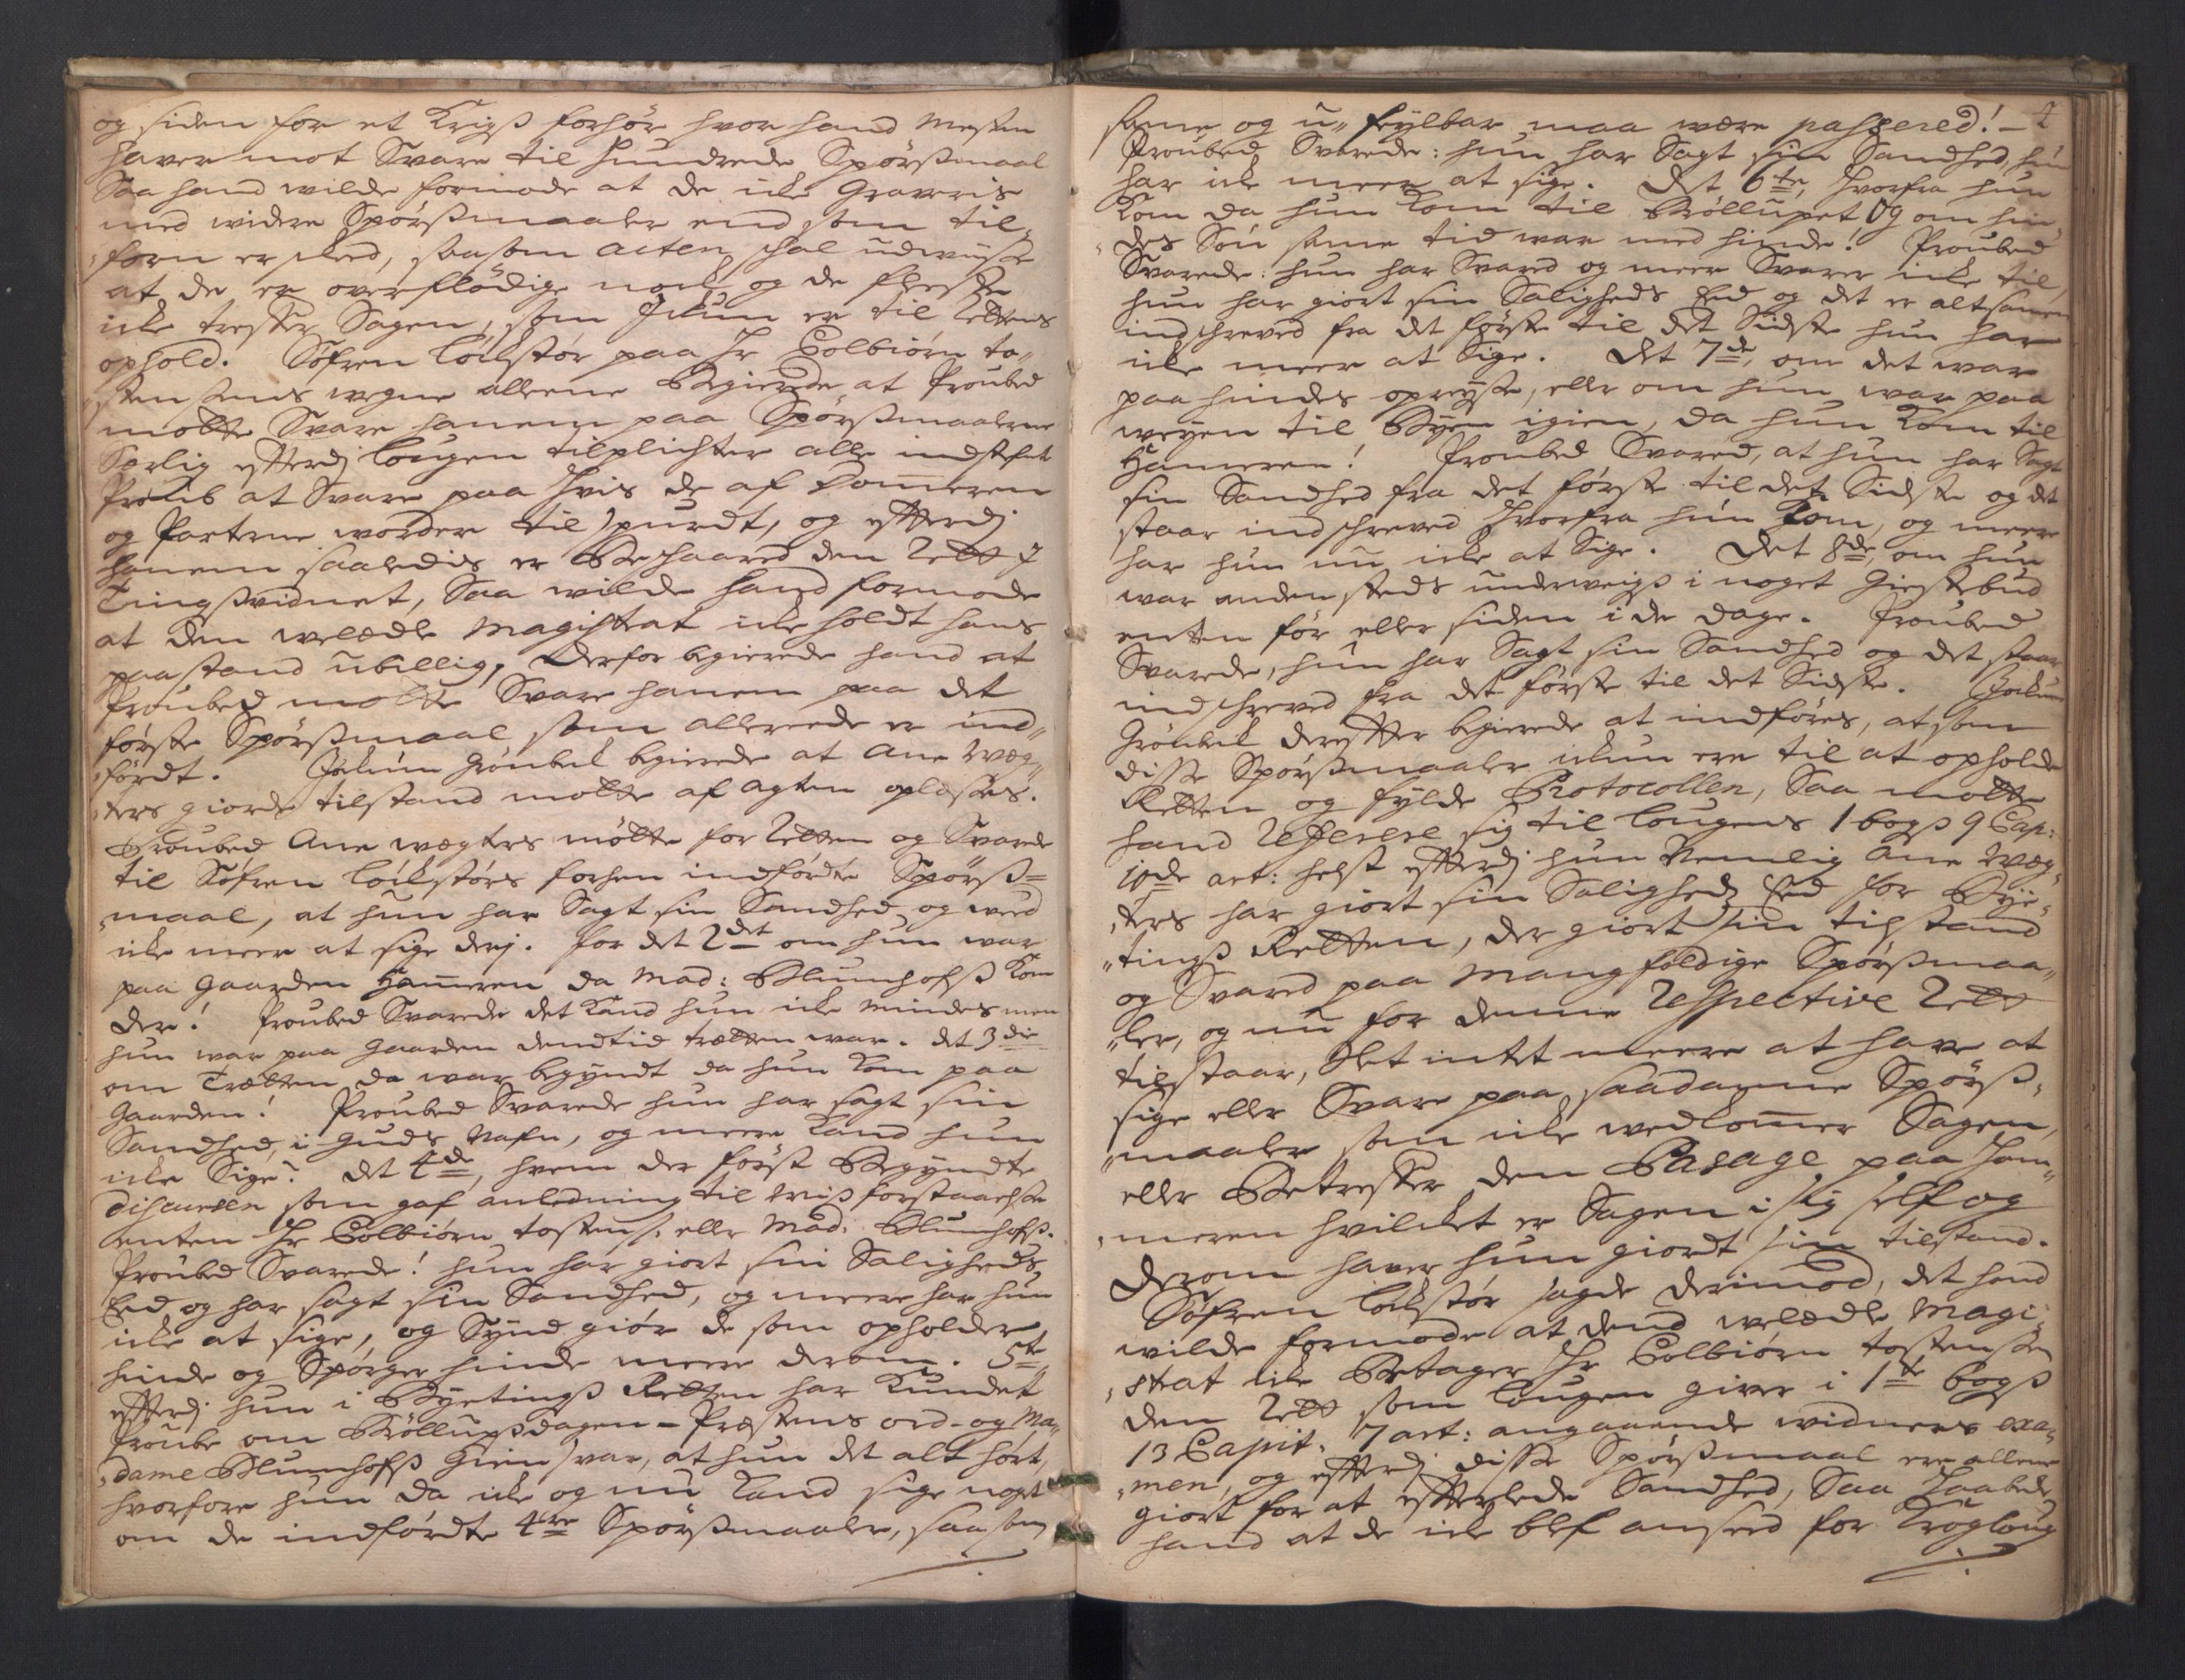 og siden for et Krigs forhør hvor hand mesten
haver mot Svare til hundrede Spørsmaal
Saa hand wilde formode at de icke Graveris
med widere Spørsmaaler end som til„
„forn er skeed, saasom acten skal udwiise
at de er overflødige nock og de fleste
icke treffer Sagen, som ickun er til Rettens
ophold. Søfren Løckstør paa Hr Colbiørn to„
„stensens wegne allene Begierede at Proubed
motte Svare hanem paa Spørsmaalerne
Særlig efterdj lougen tilplichter alle indstefnt
at Svare paa hvis de af Dommeren
og Parterne worder til spurdt, og efterdj
hanem saaledis er Beskaared den Rett J
Tingswidnet, Saa wilde hand formode
at den welædle Magistrat icke holdt hans
paastand ubillig, derfor begierede hand at
Proubed motte Svare hanem paa det
første Spørsmaal som allerede er ind„
„førdt. Jochum Grønbek begierede at Ane Wæg„
„ters giorde tilstand motte af Agten oplæses.
Proubed Ane wægters møtte for Retten og Svarede
til Søfren Løckstørs forhen indførdte Spørs=
„maal, at hun har Sagt sin Sandhed og weed
icke meer at sige derj. for det 2det om hun war
paa Gaarden Hammeren da Mad: Blumhofs kom
der! Proubed Svarede det kand hun icke mindes men
hun war paa Gaarden dendtid trætten war. det 3die
om Trætten da war begyndt da hun kom paa
Gaarden! Proubed Svarede hun har sagt sin
Sandhed, i Guds Nafn, og meere kand hun
icke Sige: det 4de, hvem der først Begyndte
discursen som gaf anledning til Misforstaaelse
enten Hr Colbiørn tostens: eller Mad: Blumhofs.
Proubed Svarede! hun har giort sin Saligheds
Eed og har sagt sin Sandhed, og meere har hun
icke at sige, og Synd giør de som opholder
hinde og Spørger hinde meere derom. 5te
efterdj hun i Byetings Retten har kundet
Proube om Bøllupsdagen – Præstens ord – og Ma„
„dame Blumhofs Giensvar, at hun det alt hørt,
hvorfore hun da icke og nu kand sige noget
om de indførdte 4re Spørsmaaler, saasom
samme og u„feylbar maa være passered! – 4
Proubed Svarede: hun har Sagt sin Sandhed, hun
har icke meer at sige. Det 6te, hvorfra hun
kom da hun kom til Bøllupet Og om hin„
„des Søn samme tid war med hinde! Proubed
Svarede: hun har Svared og meer Svarer icke til,
hun har giort sin Saligheds Eed og det er altsamen
indschreved fra det første til det Sidste hun har
icke meer at Sige. Det 7de, om det war
paa hindes opreyse, eller om hun war paa
weyen til Byen igien, da hun kom til
Hammeren! Proubed Svared, at hun har Sagt
sin Sandhed fra det første til det Sidste og det
staar indschreved hvorfra hun kom, og meere
har hun nu icke at Sige. Det 8de, om hun
war anden steds underweigs i noget Giestebud
enten før eller siden i de dage. Proubed
Svarede, hun har Sagt sin Sandhed og det staar
indschreved fra det første til det Sidste. Jochum
Grønbek derefter begierede at indføres, at som
disse Spørsmaaler ickun ere til at opholde
Retten og fylde Protocollen, Saa motte
hand Referere sig til Lougens 1 bogs 9 Cap:
10de art: helst efterdj hun Nemlig Ane Wæg„
„ters har giort sin Saligheds Eed for Bye„
„tings Retten, der giort sin tilstand
og Svared paa Mangfoldige Spørsmaa„
„ler, og nu for denne Respective Rett
tilstaar, Slet intet meere at have at
sige eller Svare paa saadanne Spørs„
„maaler som icke wedkommer Sagen,
eller Betreffer den Pasage paa Ham„
„meren hvilcket er Sagen i sig self og
derom haver hun giordt sin tilstand.
Søfren Løckstør sagde derimod, det hand
wilde formode at dend welædle Magi„
„strat icke Betager Hr Colbiørn tostensen
den Rett som Lougen giver i 1te bogs
13 Capit: 7 art: angaaende widners exa„
„men, og efterdj disse Spørsmaal ere allene
giort for at efterlede Sandhed, Saa haabede
hand at de icke blef anseed for Krogloug